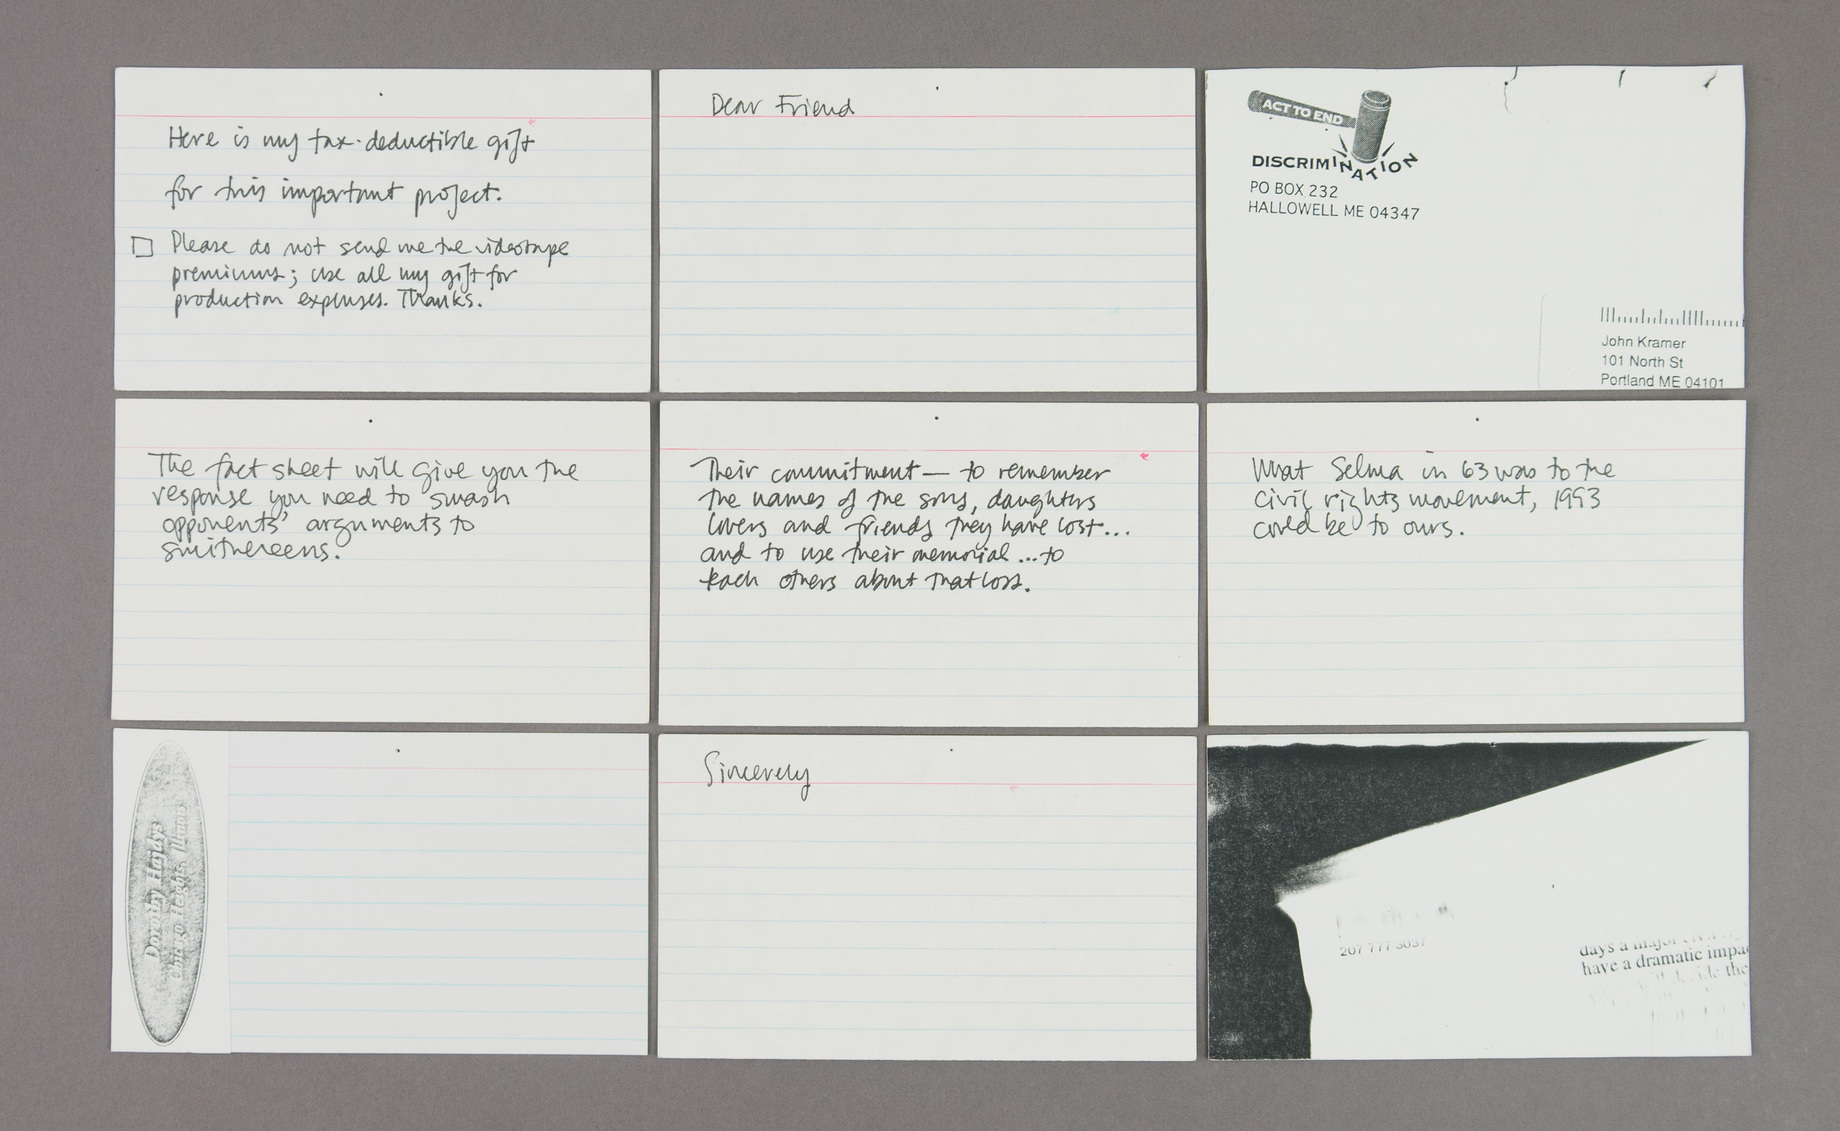 Here is my tax-deductible gift
for this important project.
Please do not send me the videotape
premiums; use all my gift for
production expenses. Thanks.
Dear Friend
ACT TO END
DISCRIMINATION
PO BOX 232
HALLOWELL ME 04347
John Kramer
101 North St
Portland ME 04101
The fact sheet will give you the
response you need to smash
opponents' arguments to
smithereens.
Their commitment — to remember
the names of the sons, daughters
lovers and friends they have lost...
and to use their memorial ... to
teach others about that loss.
What Selma in 63 was to the
civil rights movement, 1993
could be to ours.
Dorothy Hajdys
Chicago Heights, Illinois
Sincerely
207 777
days a major
have a dramatic
the